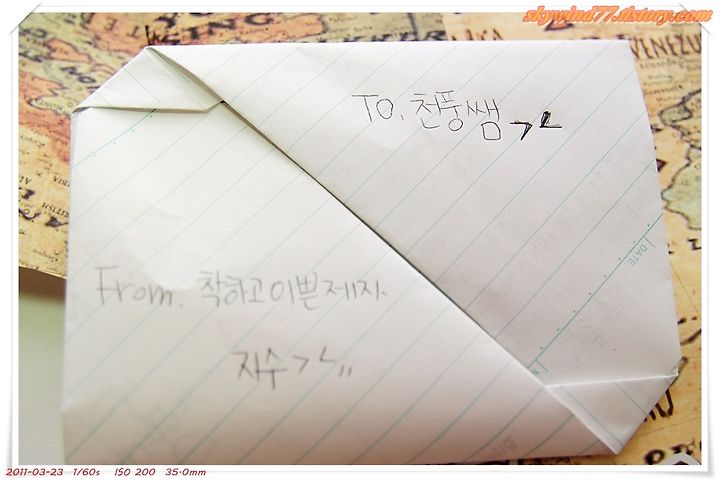 skywind77.tistory.com
VENEZU
To. 천풍쌤 ㄱㄴ
DATE.
From. 착하고이쁜제자.
지수ㄱㄴ,,
2011-03-23 1/60s ISO 200 35.0mm